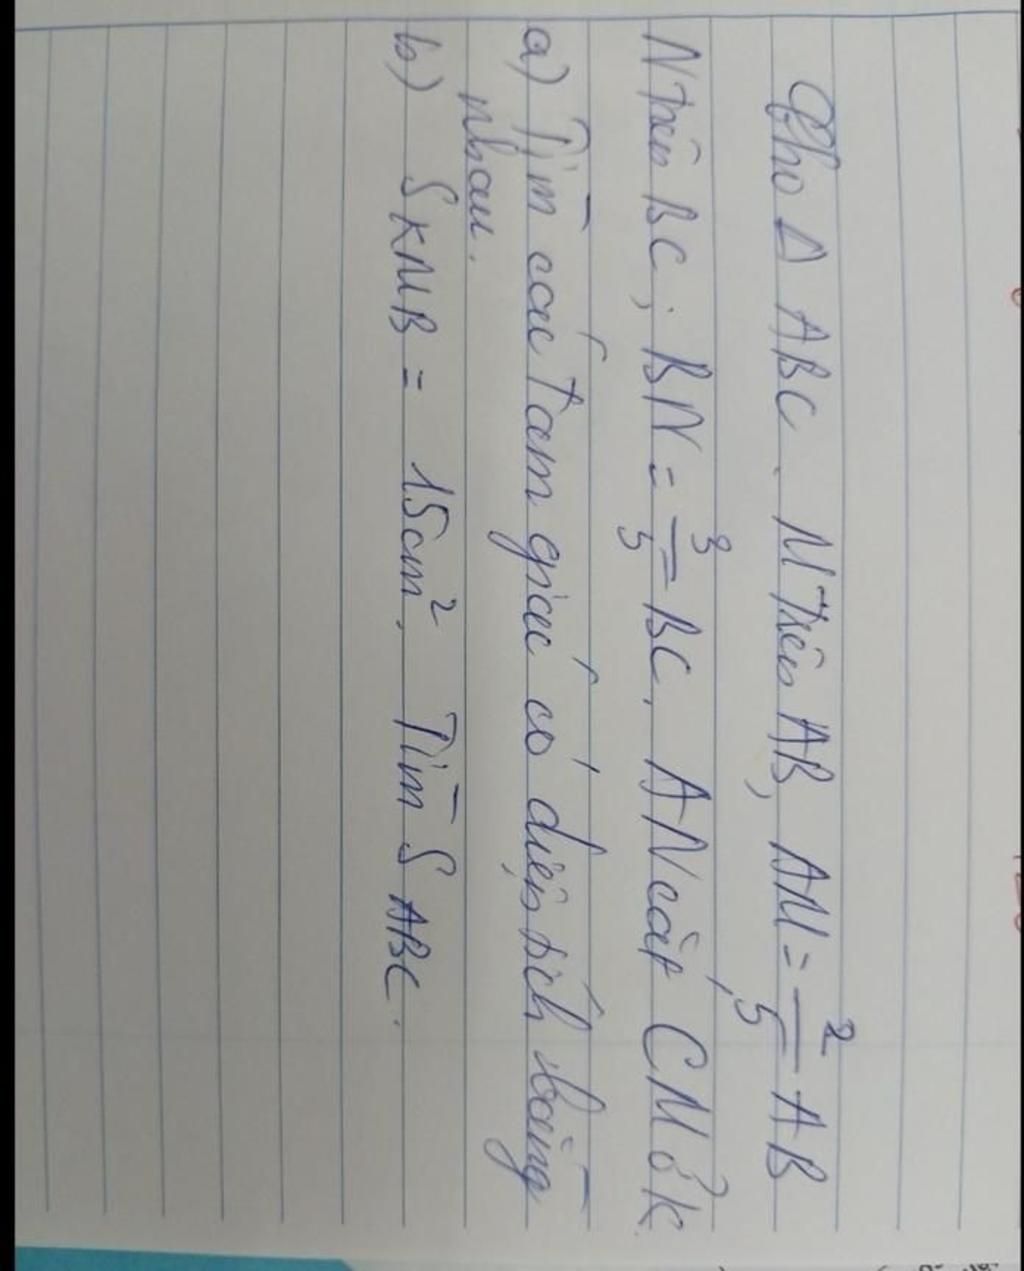 Cho Δ ABC. M trên AB, AM = 2/5 AB
N trên BC, BN = 3/5 BC. AN cắt CM ở K
a) Tìm các tam giác có diện tích bằng
nhau.
b) S KMB = 15cm². Tìm S ABC.